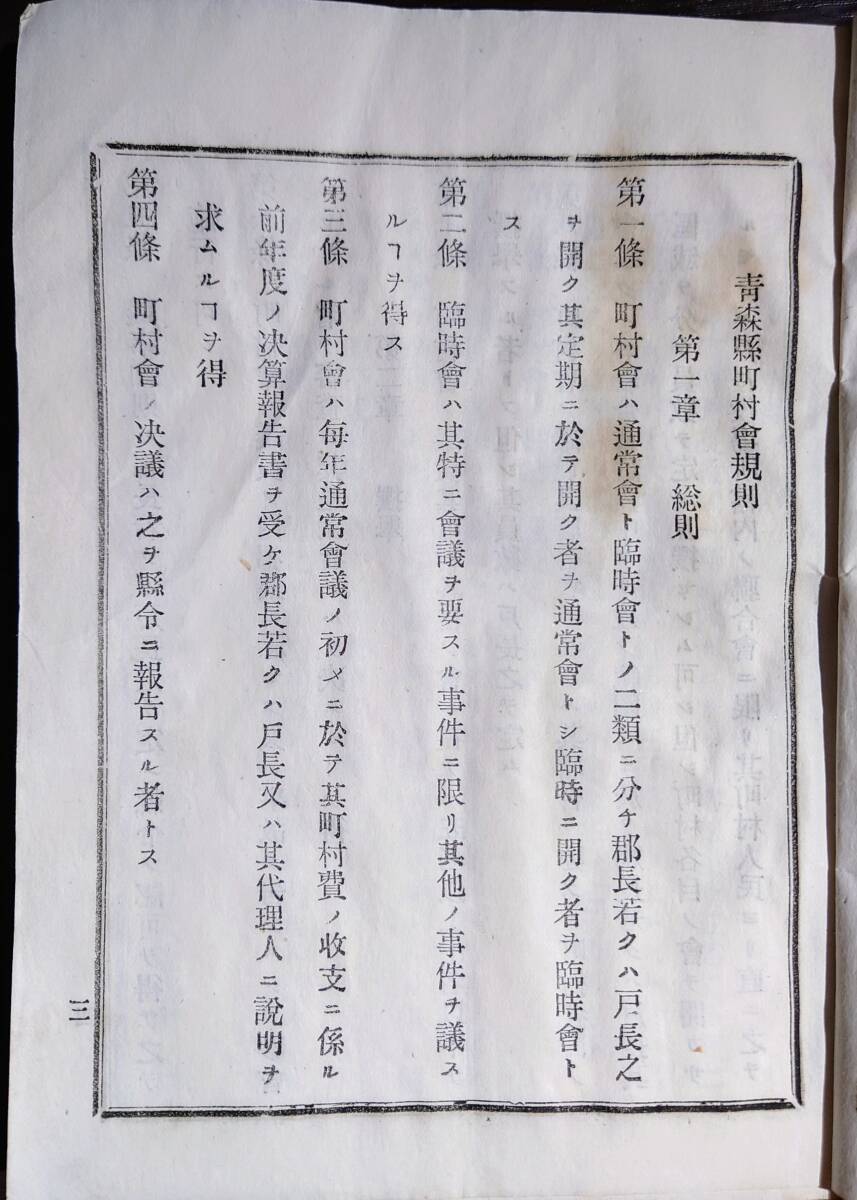 靑森縣町村會規則
第一章 総則
第一條 町村會ハ通常會ト臨時會トノ二類ニ分チ郡長若クハ戸長之
ヲ開ク其定期ニ於テ開ク者ヲ通常會トシ臨時ニ開ク者ヲ臨時會ト
ス
第二條 臨時會ハ其特ニ會議ヲ要スル事件ニ限リ其他ノ事件ヲ議ス
ルヿヲ得ス
第三條 町村會ハ每年通常會議ノ初メニ於テ其町村費ノ收支ニ係ル
前年度ノ决算報告書ヲ受ケ郡長若クハ戸長又ハ其代理人ニ說明ヲ
求ムルヿヲ得
第四條 町村會ノ决議ハ之ヲ縣令ニ報告スル者トス
三